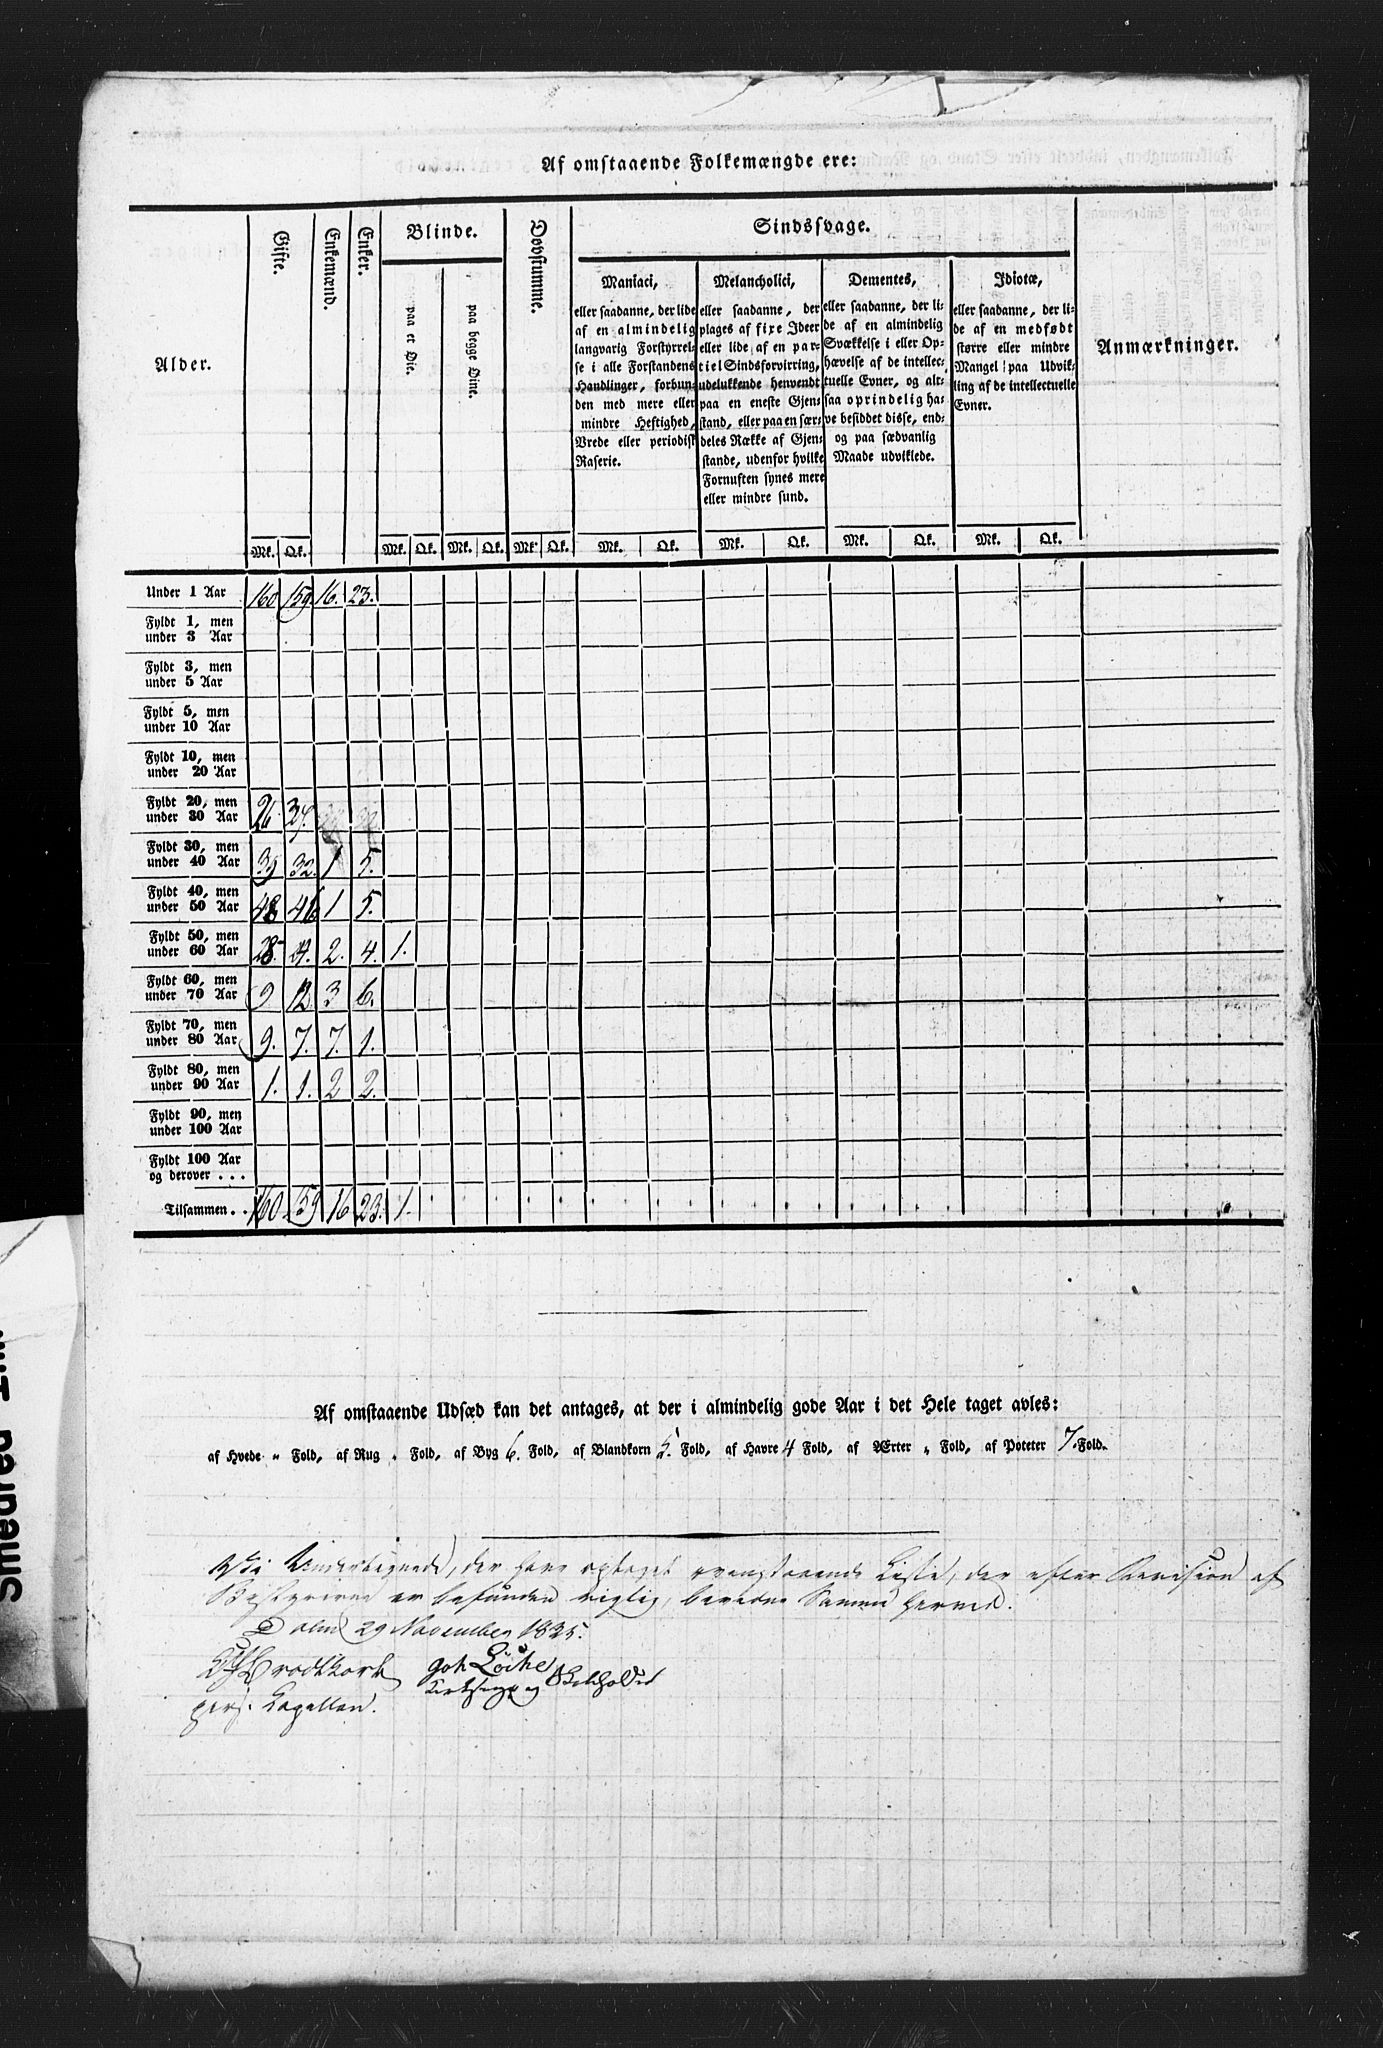 Af omstaaende Folkemængde ere:
Alder. Gifte. Enkemænd. Enker. Blinde. Døvstumme. Sindssvage. Anmærkninger.
paa et Øie. paa begge Øine.
Maniaci,
eller saadanne, der lide
af en almindelig
langvarig Forstyrrel-
se i alle Forstandens
Handlinger, forbun-
den med mere eller
mindre Heftighed,
Vrede eller periodisk
Raserie.
Melancholici,
eller saadanne, der
plages af fixe Ideer
eller lide af en par-
tiel Sindsforvirring,
udelukkende henvendt
paa en eneste Gjen-
stand, eller paa en sær-
deles Række af Gjen-
stande, udenfor hvilke
Fornuften synes mere
eller mindre sund.
Dementes,
eller saadanne, der li-
de af en almindelig
Svækkelse i eller Op-
hævelse af de intellec-
tuelle Evner, og alt-
saa oprindelig ha-
ve besiddet disse, end-
og paa sædvanlig
Maade udviklede.
Idiotæ,
eller saadanne, der li-
de af en medfødt
større eller mindre
Mangel paa Udvik-
ling af de intellectuelle
Evner.
Mk. Qk. Mk. Qk. Mk. Qk. Mk. Qk. Mk. Qk. Mk. Qk. Mk. Qk. Mk. Qk.
Under 1 Aar 160 159. 16. 23.
Fyldt 1, men
under 3 Aar
Fyldt 3, men
under 5 Aar
Fyldt 5, men
under 10 Aar
Fyldt 10, men
under 20 Aar
Fyldt 20, men
under 30 Aar 26.
Fyldt 30, men
under 40 Aar 39 32. 1 5.
Fyldt 40, men
under 50 Aar 48 46 1 5.
Fyldt 50, men
under 60 Aar 28. 2. 4. 1.
Fyldt 60, men
under 70 Aar 9 12. 3 6.
Fyldt 70, men
under 80 Aar 9. 7. 7. 1.
Fyldt 80, men
under 90 Aar 1. 1. 2 2.
Fyldt 90, men
under 100 Aar
Fyldt 100 Aar
og derover . . .
Tilsammen . . 160. 159 16 23. 1.
Af omstaaende Udsæd kan det antages, at der i almindelig gode Aar i det Hele taget avles:
af Hvede „ Fold, af Rug „ Fold, af Byg 6. Fold, af Blandkorn 5. Fold, af Havre 4 Fold, af Ærter „ Fold, af Poteter 7. Fold.
Vi Undertegnede, der have optaget ovenstaaende Liste, der efter Revision af
Bestyreren er befunden rigtig, bevidne Samme herved.
Dolm 29 November 1835.
Brodtkorb Joh Löche
pers. Capellan. Kirkesanger og Skoleholder